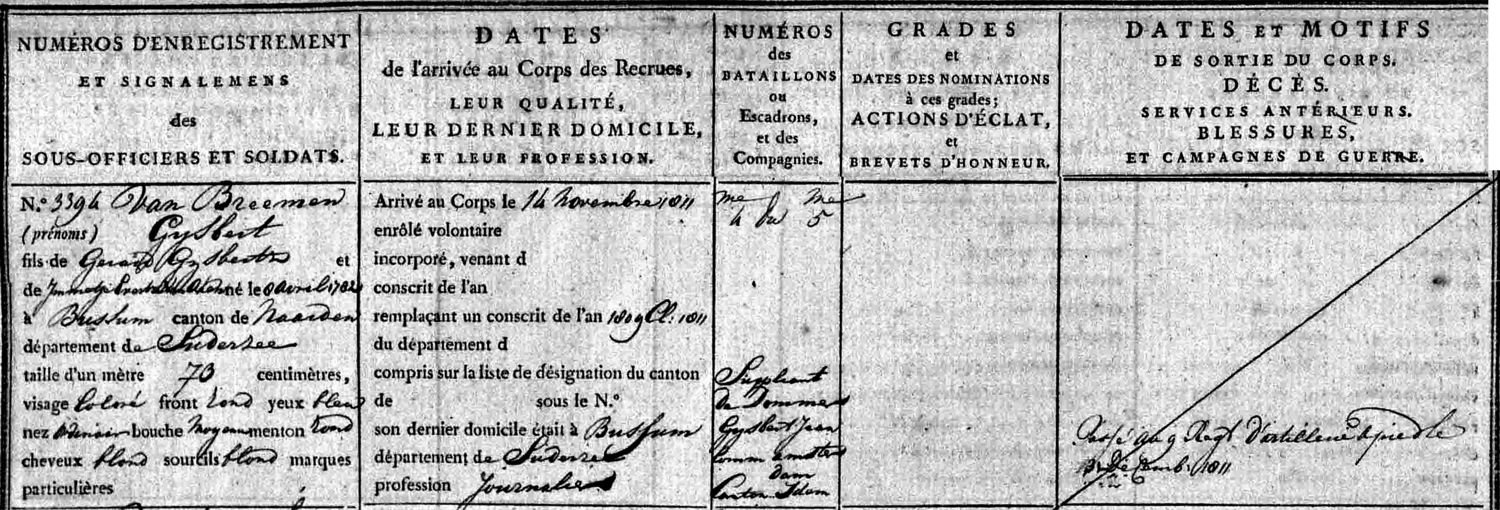 NUMÉROS D'ENREGISTREMENT
ET SIGNALEMENS
des
SOUS-OFFICIERS ET SOLDATS.
DATES
de l'arrivée au Corps des Recrues,
LEUR QUALITÉ,
LEUR DERNIER DOMICILE,
ET LEUR PROFESSION.
NUMÉROS
des
BATAILLONS
ou
Escadrons,
et des
Compagnies.
GRADES
et
DATES DES NOMINATIONS
à ces grades;
ACTIONS D'ÉCLAT,
et
BREVETS D'HONNEUR.
DATES ET MOTIFS
DE SORTIE DU CORPS.
DÉCÈS.
SERVICES ANTÉRIEURS.
BLESSURES,
ET CAMPAGNES DE GUERRE.
N.º 3394 Van Breemen
(prénoms) Gysbert
fils de Gerard Gysberts et
de né le 8 avril 1782
à Bussum canton de Naarden
département de Suderzee
taille d'un mètre 73 centimètres,
visage Coloré front rond yeux bleu
nez bouche moyenne menton rond
cheveux blond sourcils blond marques
particulières
Arrivé au Corps le 14 novembre 1811
enrôlé volontaire
incorporé, venant d
conscrit de l'an
remplaçant un conscrit de l'an 1809 Cl: 1811
du département d
compris sur la liste de désignation du canton
de sous le N.º
son dernier domicile était à Bussum
département de Suderzee
profession Journalier
me me
4 du 5
Suppleant
de Dommer
Gysbert Jean
Comm amster
dam
Canton Idem
Passé au 9 Regt d'artillerie à pied le
Decemb. 1811